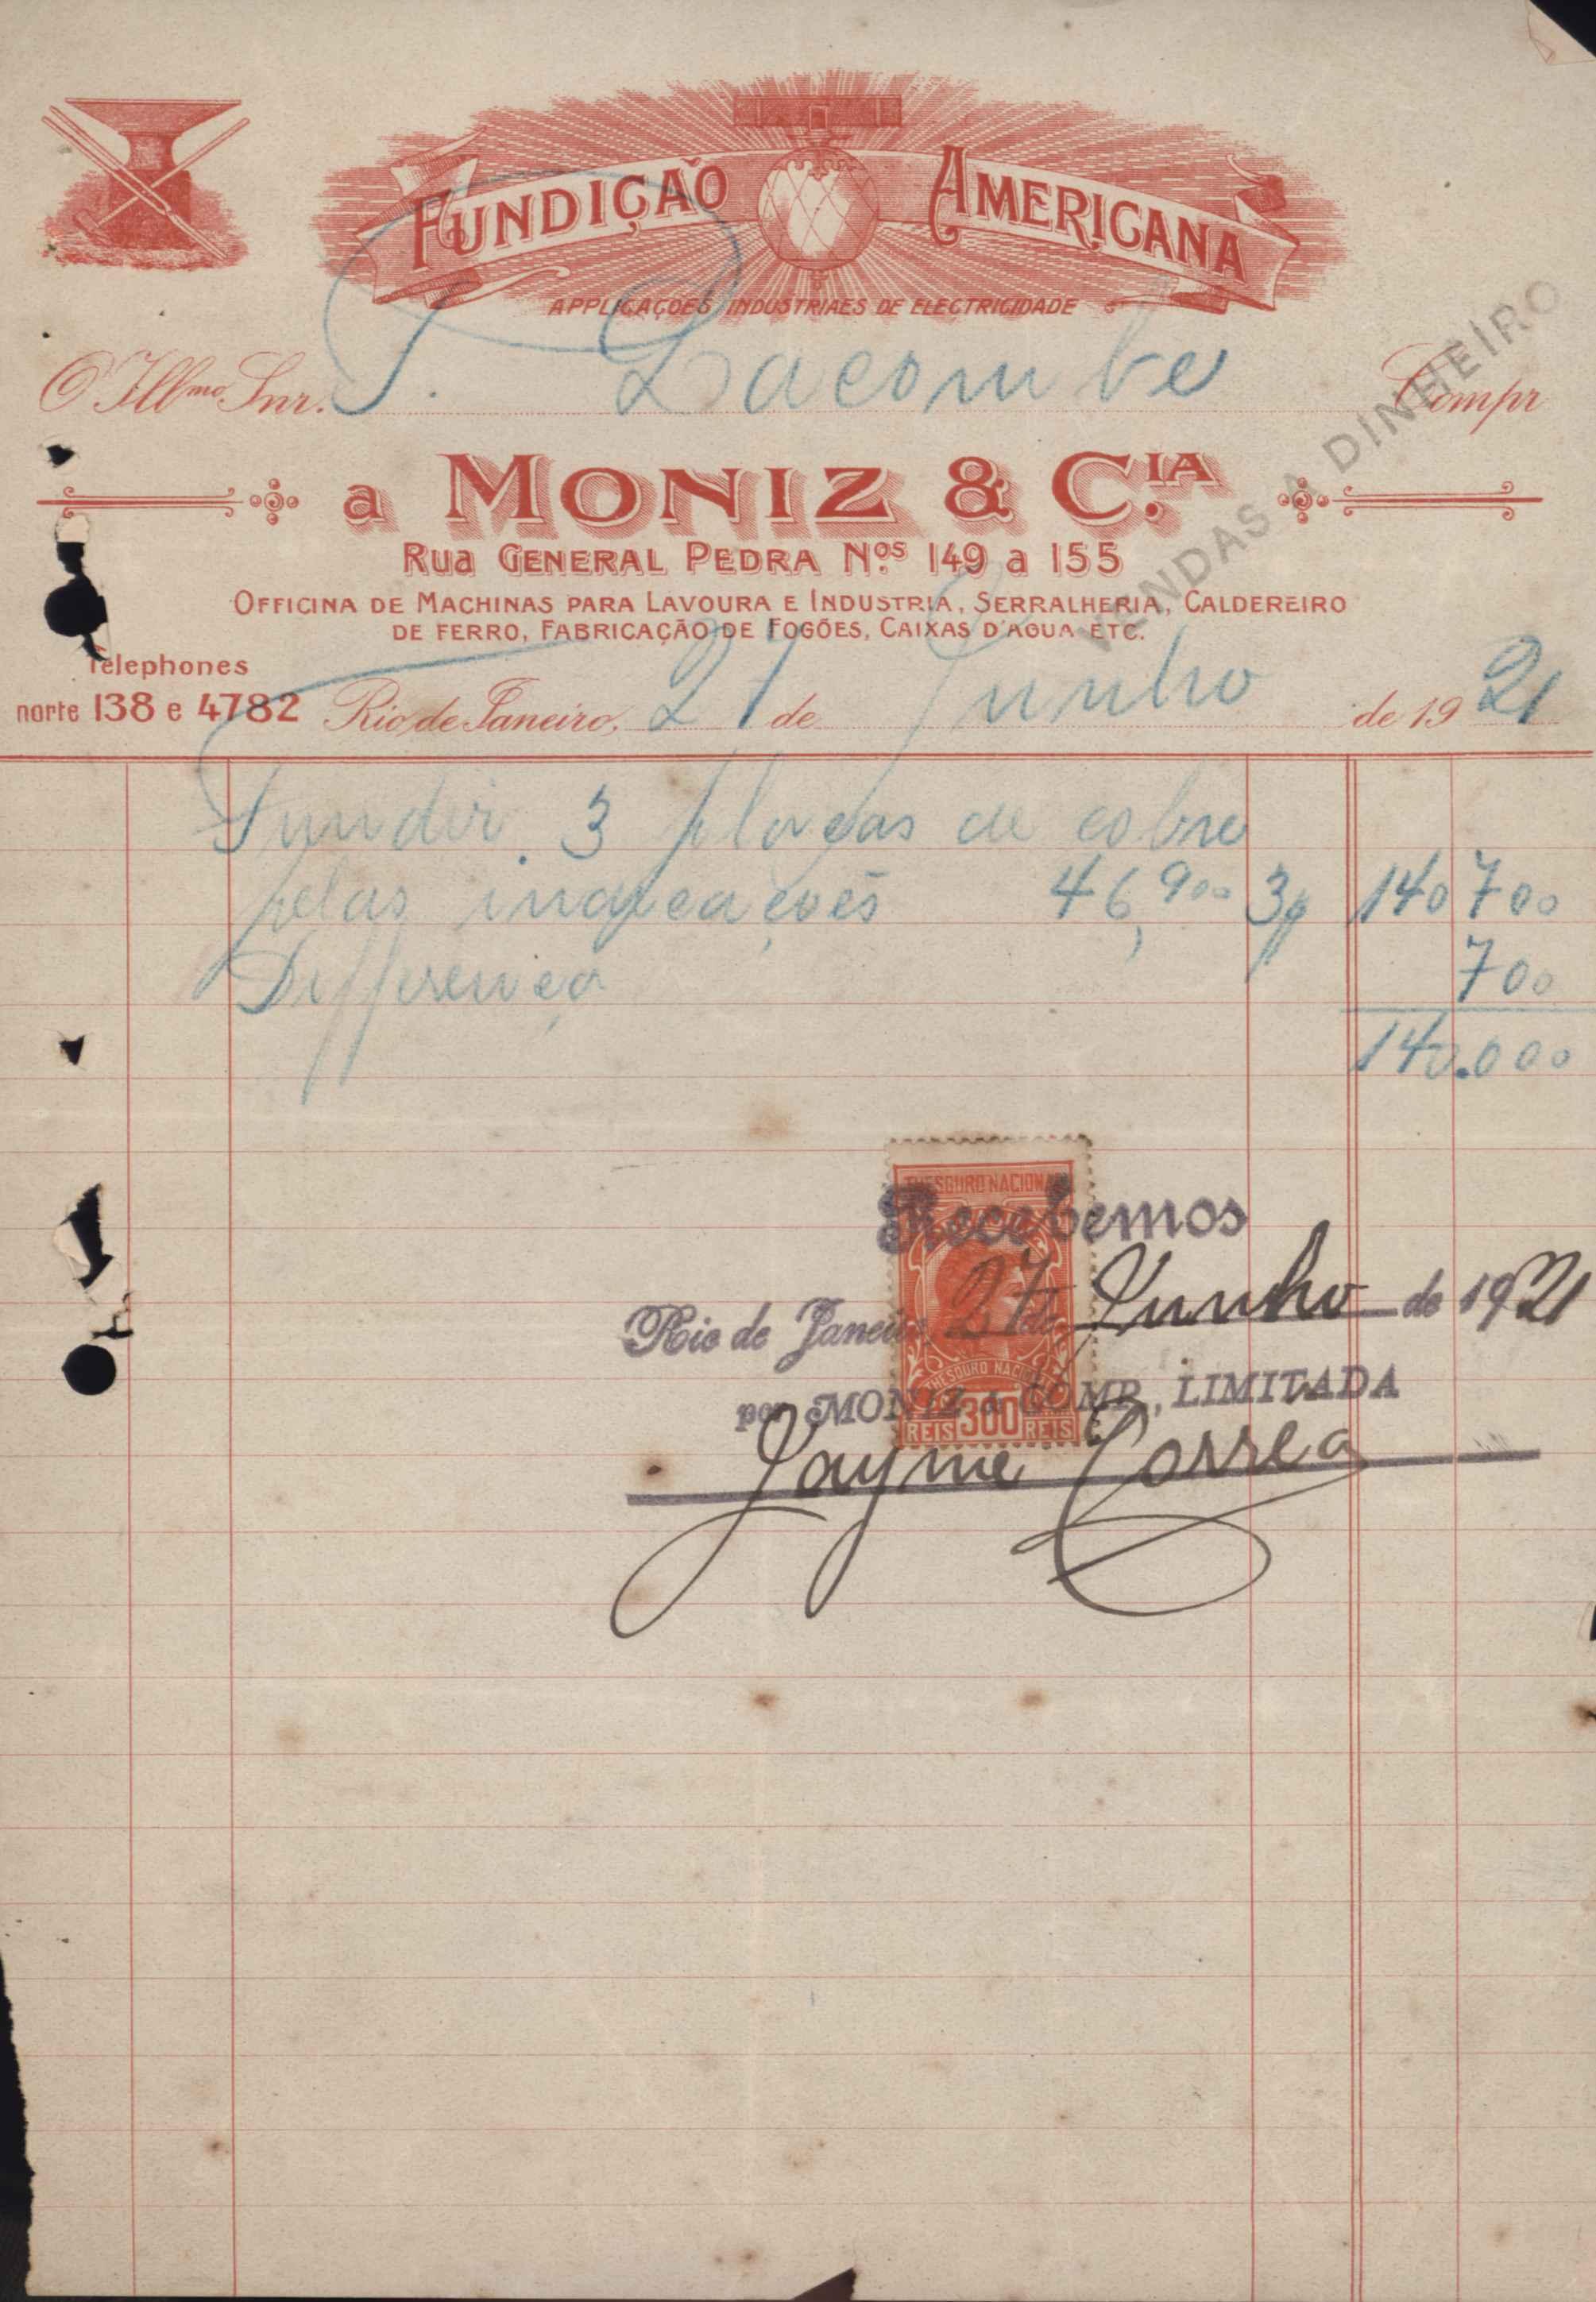 FUNDIÇÃO AMERICANA
APPLICAÇÕES INDUSTRIAES DE ELECTRICIDADE
O Illmo. Snr. J. Lacombe Compr
VENDAS A DINHEIRO
a MONIZ & C.IA
RUA GENERAL PEDRA Nos 149 a 155
OFFICINA DE MACHINAS PARA LAVOURA E INDUSTRIA, SERRALHERIA, CALDEREIRO
DE FERRO, FABRICAÇÃO DE FOGÕES, CAIXAS D'AGUA ETC.
Telephones
norte 138 e 4782 Rio de Janeiro, 27 de Junho de 1921
Fundir 3 placas de cobre
pelas indicações 46,900 3$ 140 700
Differença 700
140.000
THESOURO NACIONAL
Recebemos
Rio de Janeiro 27 de Junho de 1921
THESOURO NACIONAL
por MONIZ & COMP., LIMITADA
REIS 300 REIS
Jayme Corrêa